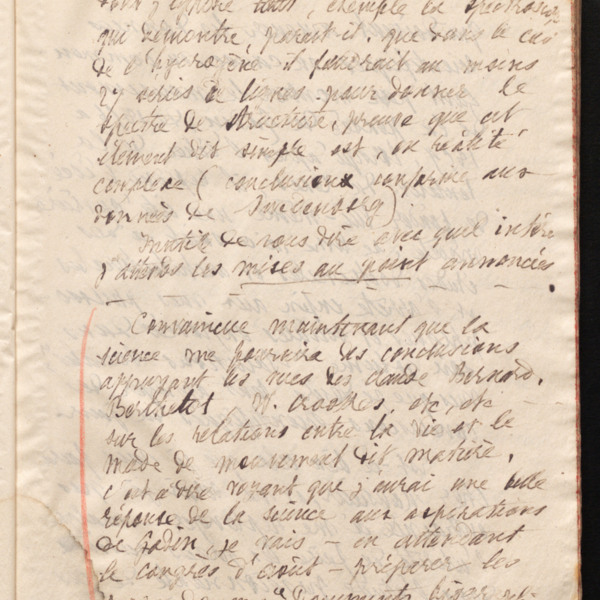 qui démontre, paraît-il, que dans le cas
de l'hydrogène il faudrait au moins
27 séries de lignes pour donner le
spectre de structure, preuve que cet
élément dit simple est, en réalité
complexe (conclusions conforme aux
données de
Inutile de vous dire avec quel
j'attends les mises au point annoncées.
Convaincue maintenant que la
science me fournira des conclusions
appuyant les vues des Claude Bernard,
Berthelot W. Crookes, etc, etc
sur les relations entre la vie et le
mode de mouvement dit matière,
c'est à dire voyant que j'aurai une belle
réponse de la science aux aspirations
de je vais – en attendant
le congrès d'août – préparer les